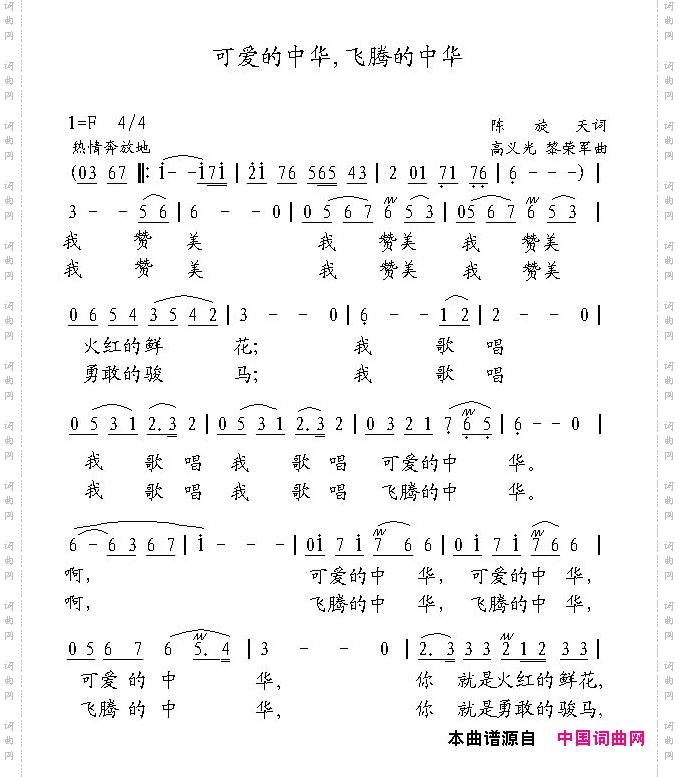 可爱的中华,飞腾的中华
1=F 4/4
陈 旋 天词
热情奔放地
高义光 黎荣军曲
(03 67 ‖: i - - i7i | 2i 76 565 43 | 2 01 71 76 | 6 - - -) |
3 - - 56 | 6 - - 0 | 0 5 6 7 6 5 3 | 05 6 7 6 5 3 |
我 赞 美 我 赞美 我 赞美
我 赞 美 我 赞美 我 赞美
0 6 5 4 3 5 4 2 | 3 - - 0 | 6 - - 1 2 | 2 - - 0 |
火红的鲜 花; 我 歌 唱
勇敢的骏 马; 我 歌 唱
0 5 3 1 2. 3 2 | 0 5 3 1 2. 3 2 | 0 3 2 1 7 6 5 | 6 - - 0 |
我 歌 唱 我 歌 唱 可爱的中 华。
我 歌 唱 我 歌 唱 飞腾的中 华。
6 - 6 3 6 7 | i - - - | 0i 7 i 7 6 6 | 0i 7 i 7 6 6 |
啊, 可爱的中 华, 可爱的中 华,
啊, 飞腾的中 华, 飞腾的中 华,
0 5 6 7 6 5. 4 | 3 - - 0 | 2. 3 3 3 2 1 2 3 3 |
可爱 的 中 华, 你 就是火红的鲜花,
飞腾 的 中 华, 你 就是勇敢的骏马,
本曲谱源自 中国词曲网
词曲网